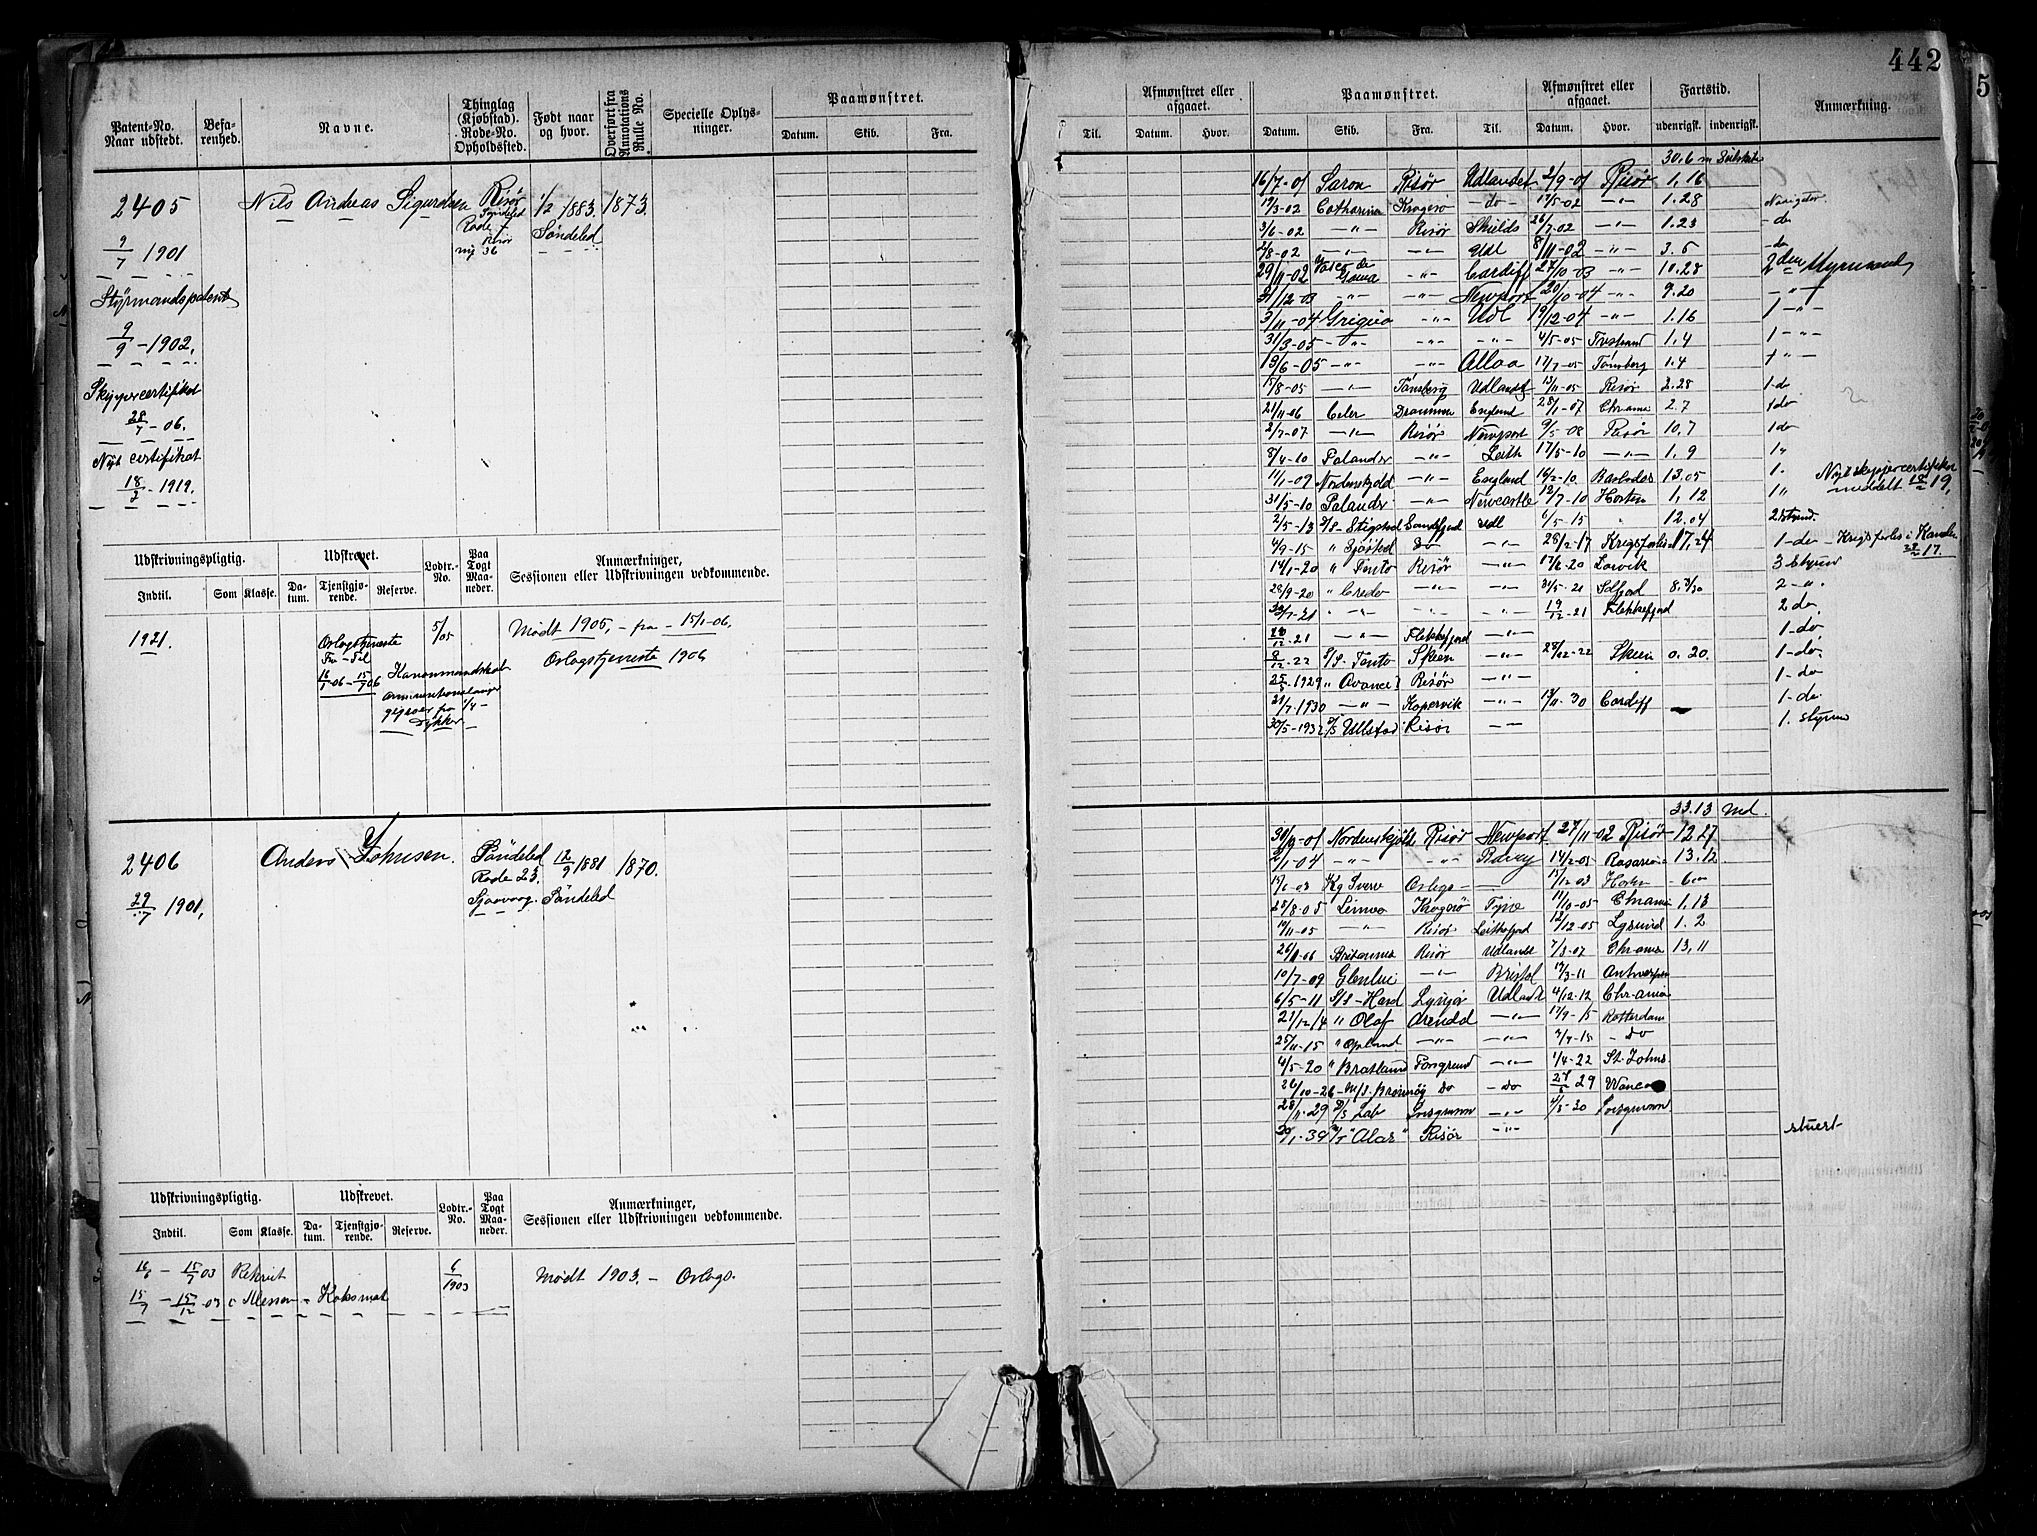 442
Patent-No. Naar udstedt.
Befarenhed.
Navne.
Thinglag (Kjøbstad). Rode-No. Opholdssted.
Født naar og hvor.
Overført fra Annotations Rulle No.
Specielle Oplysninger.
Paamønstret.
Datum. Skib. Fra.
Til.
Afmønstret eller afgaaet.
Datum. Hvor.
Paamønstret.
Datum. Skib. Fra. Til.
Afmønstret eller afgaaet.
Datum. Hvor.
Fartstid.
udenrigsk. indenrigsk.
Anmærkning.
2405
9/7 1901
Styrmandspatent
9/9 - 1902.
Skippercertifikat
28/7 - 06.
Nyt certifikat
18/2 - 1919.
Nils Andreas Sigurdsen
Risør
Søndeled
Rode 7
Risør
ny 36
1/2 1883.
Søndeled
1873.
30.6 m
16/7-01 Saron Risør Udlandet 2/9-01 Risør 1.16
19/3-02 Catharina Kragerø -do- 17/5-02 -"- 1.28
3/6-02 -"- Risør Shields 26/7-02 -"- 1.23 - do
2/8-02 -"- -"- Udl 8/11-02 -"- 3.6 - do
29/11-02 Vasco da Gama -"- Cardiff 27/10-03 -"- 10.28 2den Styrmand
/12-03 -"- -"- Newport 20/10-04 -"- 9.20 -"-
3/11-04 Griqua -"- Udl 19/12-04 -"- 1.16 1 -"-
31/3-05 -"- -"- -"- 4/5-05 1.4 1 -"-
13/6-05 -"- -"- Alloa 17/7-05 Tønsberg 1.4 1 "-
15/8-05 -"- Tønsberg Udlandet 13/11-05 Risør 2.28 1 do
21/11-06 Celer Drammen England 28/1-07 Chrania 2.7 1 do
2/7-07 -"- Risør Newport 9/5-08 Risør 10.7 1 do
8/4-10 Palander -"- Leith 17/5-10 -"- 1.9 1 "
11/1-09 Nordenskjold -"- England 16/2-10 Barbados 13.05 1.
31/5-10 Palander -"- Newcastle 12/7-10 Horten 1.12 1 "
Nyt skippercertifikat meddelt 18/2 19,
2/5-13 S/S Stigstad Sandefjord Udl 6/5-15 " 12.04 2 Styrmd.
4/9-15 " Sjøstad do -"- 28/2-17 17.24 1 - do - Krigsforlis i Kanalen 28/2 17.
14/1-20 " Tento Risør -"- 17/6-20 Larvik 3 Styrmd
28/9-20 " Credo -"- -"- 31/5-21
-21 " -"- -"- -"- 19/12-21 Flekkefjord 2 do.
/12-21 -"- Flekkefjord -"- 1 - do
9/12-22 S/S. Tento Skeen -"- 28/12-22 Skeen 0.20. 1 - do
-1929 " Avance I Risør -"- 1 - do
21/7-1930 -"- Kopervik -"- 13/11-30 Cardiff 1 - do.
30/5-1932 D/S Ullstad Risør -"- 1. styrmd
Udskrivningspligtig.
Udskrevet.
Lodtr.-No.
Paa Togt Maaneder.
Anmærkninger, Sessionen eller Udskrivningen vedkommende.
Indtil. Som Klasse. Datum. Tjenstgjørende. Reserve.
1921.
Orlogstjeneste
Fra - Til
16/1 06 - 15/7 06
Kanonmandskab
gjøer fra 1/4 -
Dykker
5/05
Mødt 1905, - fra - 15/1-06,
Orlogstjeneste 1906
2406
29/7 1901,
Anders Johnsen.
Søndeled
Rode 23.
Sjaavaag.
12/9 1881
Søndeled
1870.
33.13 Md.
30/9-01 Nordenskjöld Risør Newport 27/11-02 Risør 12.27
2/1-04 -"- -"- 14/2-05 Rosario 13.12
15/6-03 Kg Sverre Orlogs - 15/12-03 Horten - 6 -
25/8-05 Limvo Kragerø Tyne 11/10-05 Chrania 1.13
10/11-05 -"- Risør 12/12-05 1.2
26/1-06 Britannia Risør Udlandet 7/3-07 Chrania 13.11
10/7-09 Glenlui -"- Bristol 17/3-11 Antwerpen
6/5-11 S/S Hard Lyngør Udlandet 4/12-12 Chr-ania
21/12-14 " Olaf Arendal -"- 17/9-15 Rotterdam
25/11-15 " -"- -"- - do
4/5-20 " Bratland Porsgrund -"- 1/4-22 St. Johns.
26/10-26 - M/S. Brønnøy Do - Do 29
28/11-29 D/S Porsgrunn -"- 4/3-30 Porsgrunn.
/1-39 "Alar" Risør -"-
stuert
Udskrivningspligtig.
Udskrevet.
Lodtr.-No.
Paa Togt Maaneder.
Anmærkninger, Sessionen eller Udskrivningen vedkommende.
Indtil. Som Klasse. Datum. Tjenstgjørende. Reserve.
16/6 - 15/7 03 Rekrut
15/7 - 15/12 03 Koksmat
6/1903
Mødt 1903. - Orlogs.